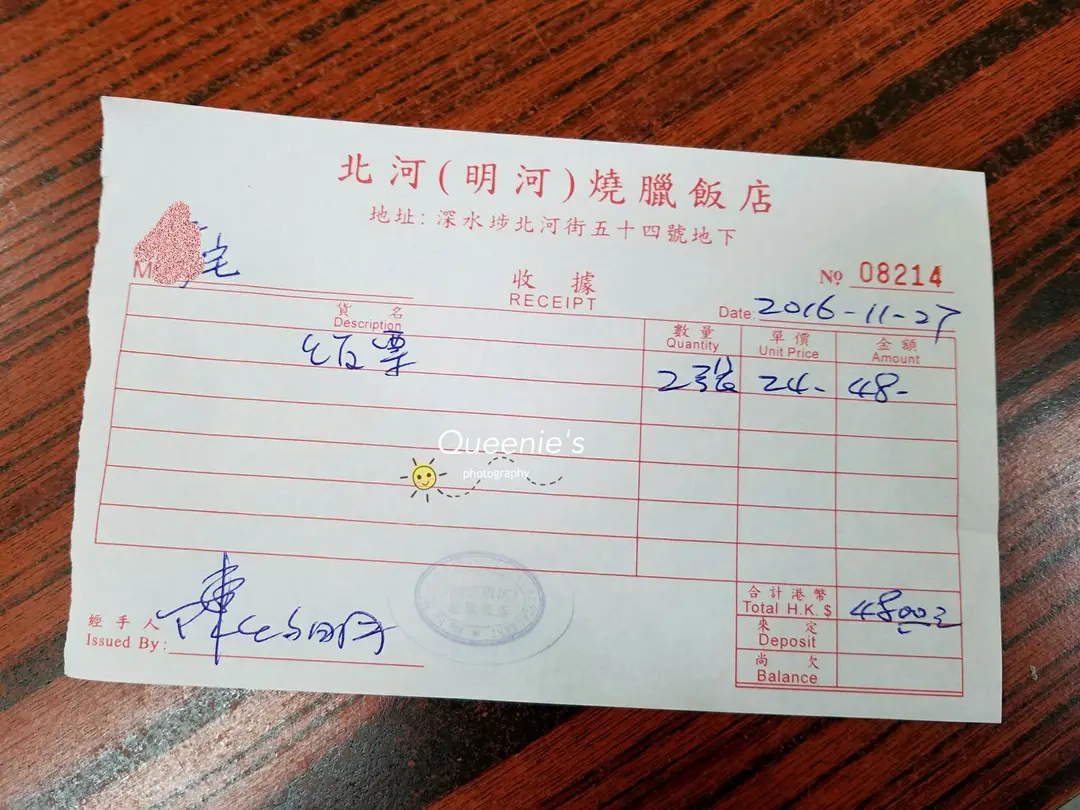 北河(明河)燒臘飯店
地址: 深水埗北河街五十四號地下
M 宅
收據
RECEIPT
Nº 08214
Date: 2016-11-27
貨名
Description
數量
Quantity
單價
Unit Price
金額
Amount
飯票 2張 24- 48-
Queenie's
photography
合計港幣
Total H.K.$ 4800
來定
Deposit
尚欠
Balance
經手人
Issued By: